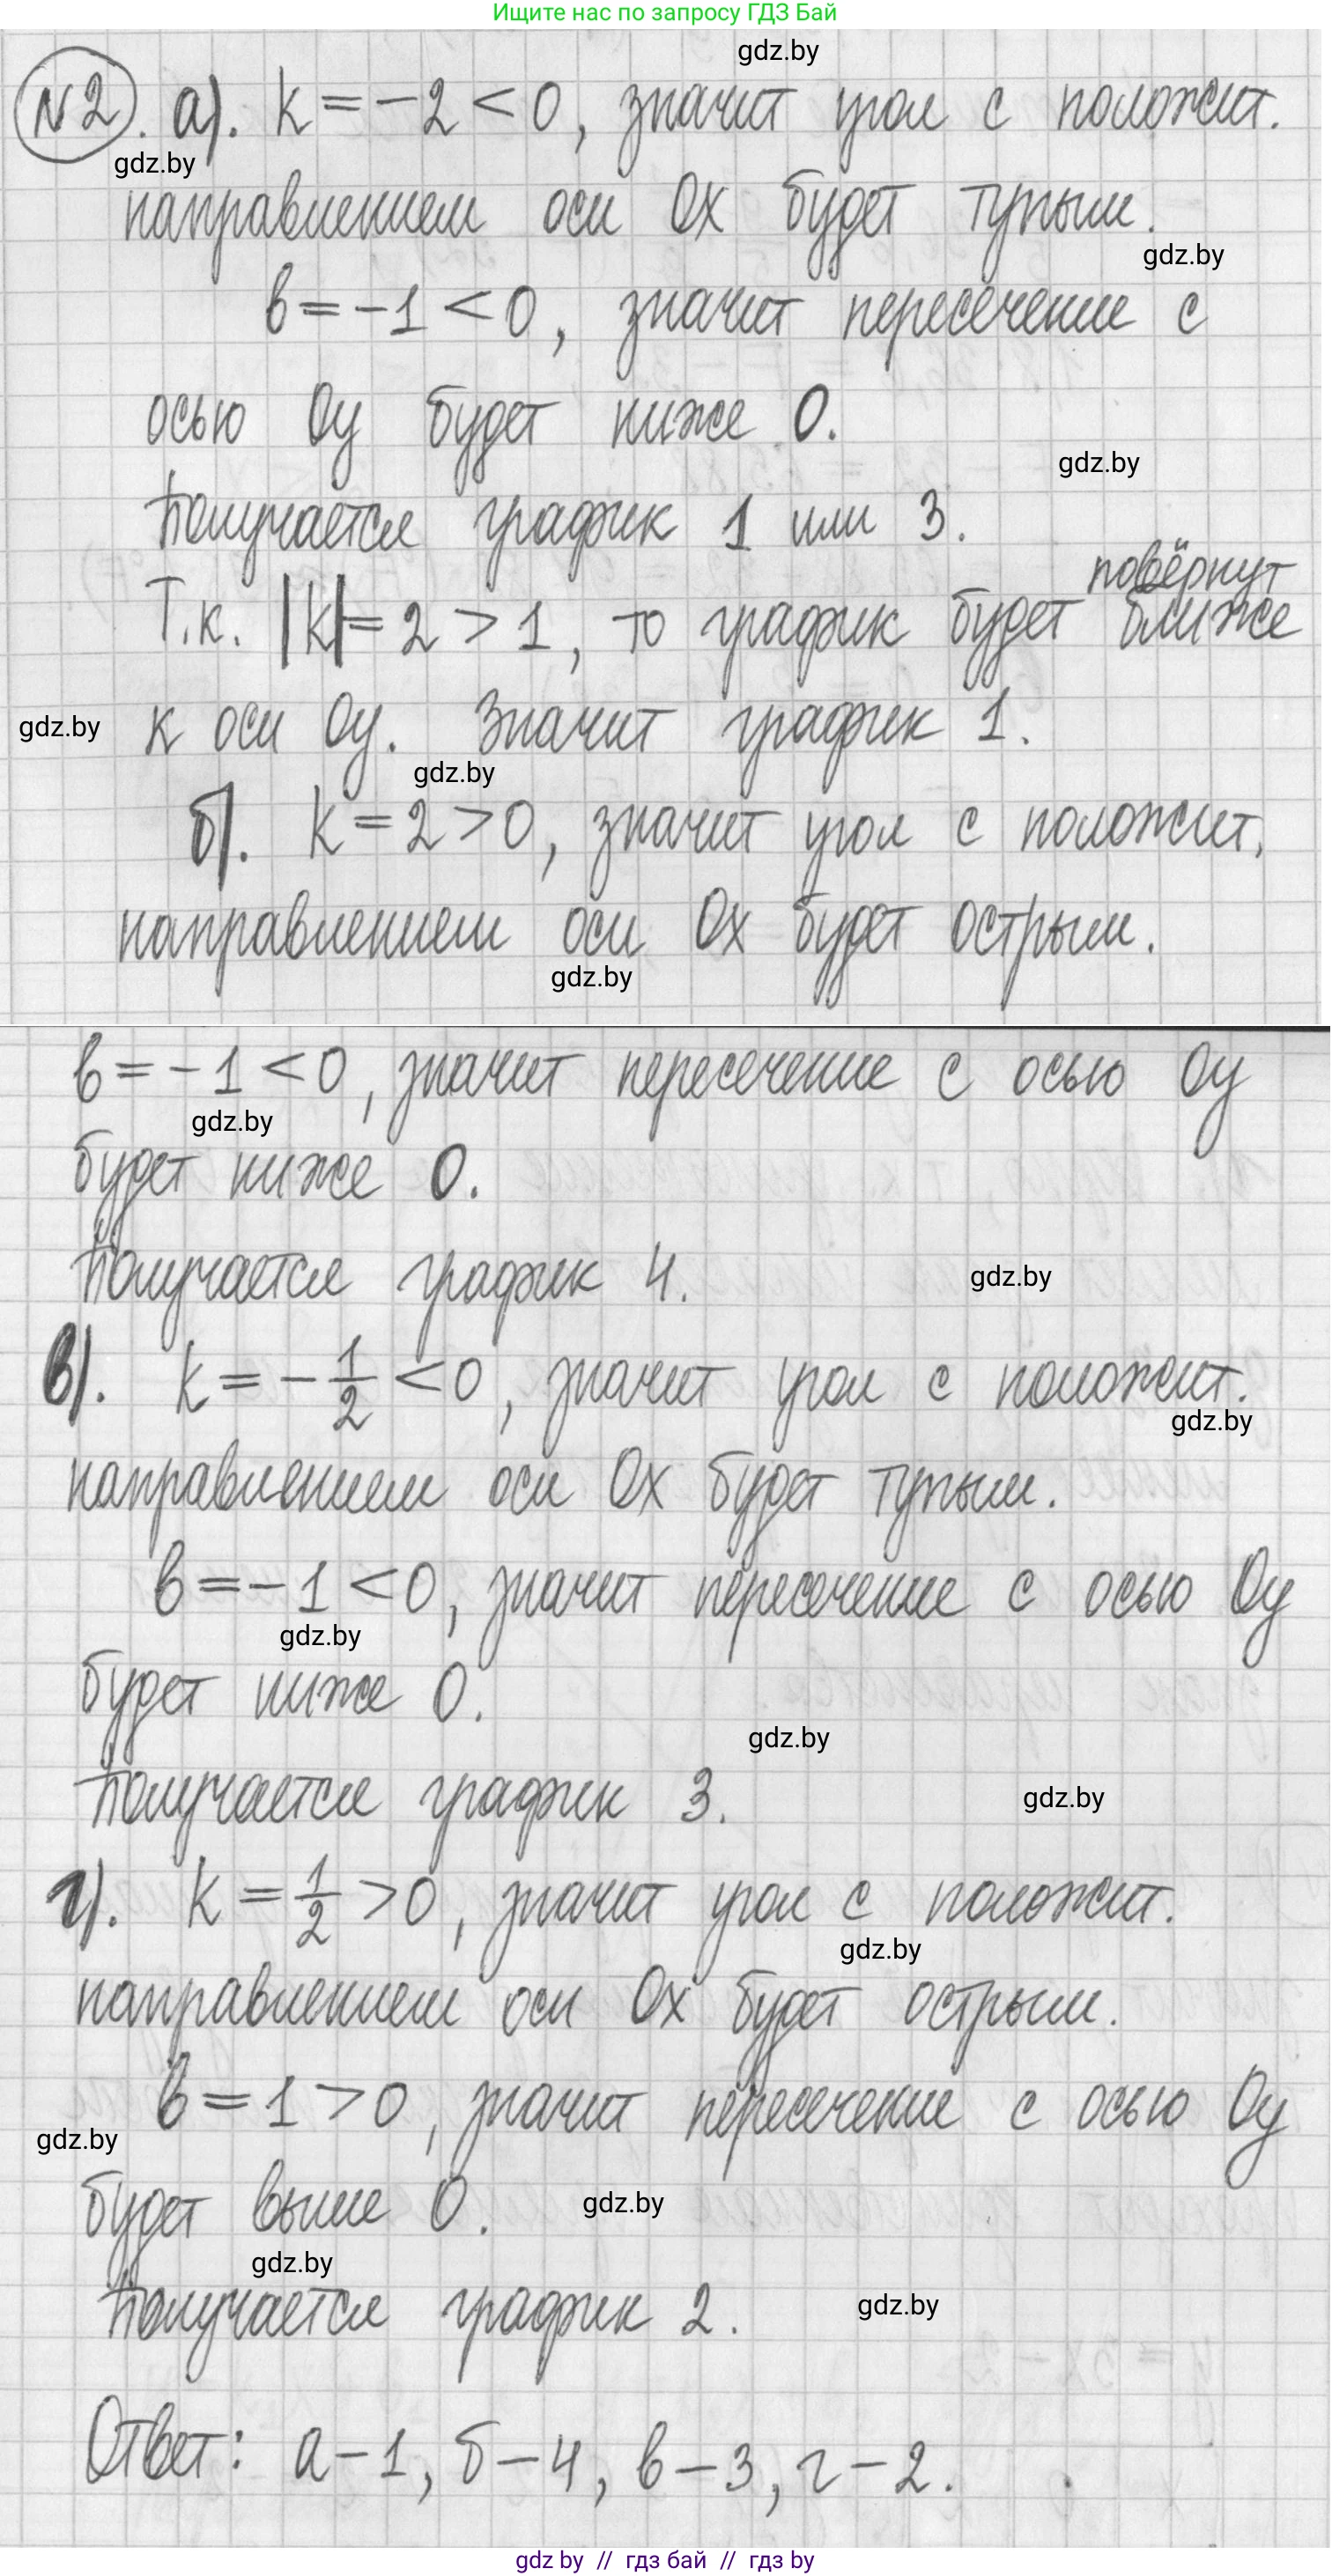 Ищите нас по запросу ГДЗ Бай
gdz.by
№2. а). k = -2 < 0, значит угол с положит.
gdz.by
направлением оси Ox будет тупым.
gdz.by
в = -1 < 0, значит пересечение с
осью Oy будет ниже 0.
gdz.by
Получается график 1 или 3.
повёрнут
Т.к. |k| = 2 > 1, то график будет ближе
gdz.by
к оси Oy. Значит график 1.
gdz.by
б). k = 2 > 0, значит угол с положит.
направлением оси Ox будет острым.
gdz.by
в = -1 < 0, значит пересечение с осью Oy
gdz.by
будет ниже 0.
Получается график 4.
gdz.by
в). k = -1/2 < 0, значит угол с положит.
gdz.by
направлением оси Ox будет тупым.
в = -1 < 0, значит пересечение с осью Oy
gdz.by
будет ниже 0.
gdz.by
Получается график 3.
gdz.by
г). k = 1/2 > 0, значит угол с положит.
gdz.by
направлением оси Ox будет острым.
в = 1 > 0, значит пересечение с осью Oy
gdz.by
будет выше 0.
gdz.by
gdz.by
Получается график 2.
gdz.by
Ответ: а-1, б-4, в-3, г-2.
gdz by // гдз бай // гдз by